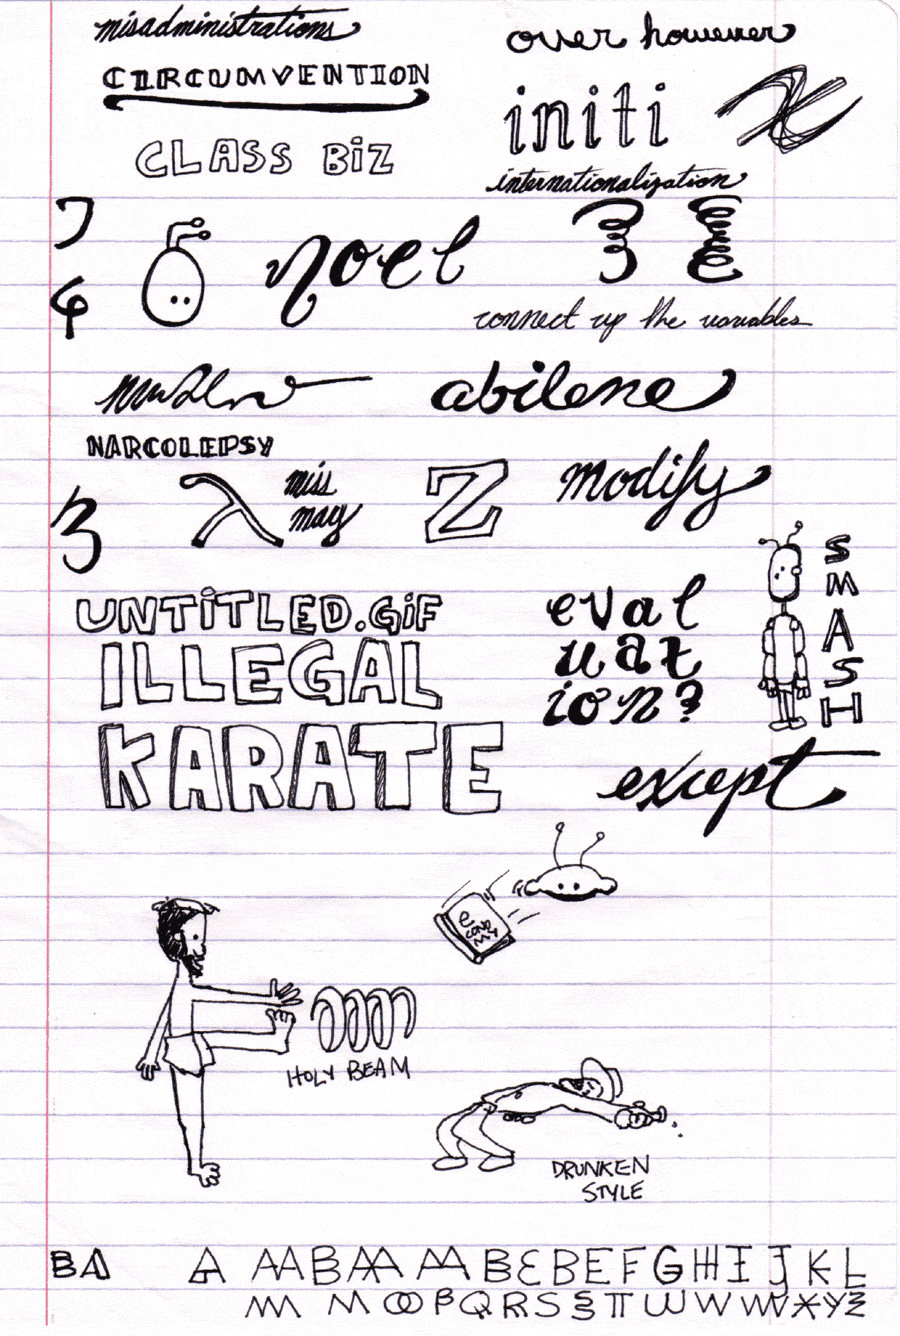 misadministrations
over however
CIRCUMVENTION
initi x
CLASS BiZ
internationalization
7
noel 3 3
4
connect up the variables
abilene
NARCOLEPSY
3 λ miss
may
Z modify
UNTiTLED.GiF
ILLEGAL
KARATE
eval
uat
ion?
SMASH
except
ECONO
MY
HOLY BEAM
DRUNKEN
STYLE
BA A AABAA AA BEBEFGHIJKL
M M OO P Q R S Π W W W X Y Z